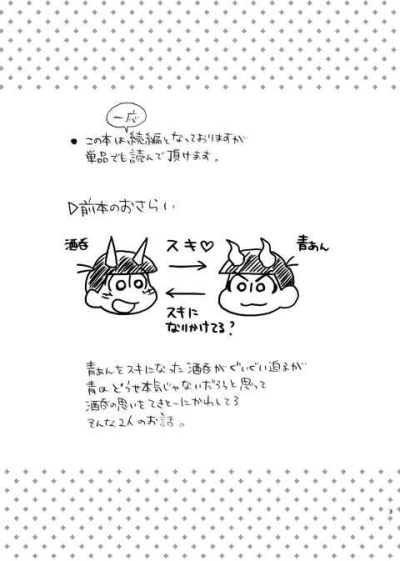 一応
● この本は続編となっておりますが
単品でも読んで頂けます。
▷前本のおさらい
酒呑
スキ♡
青あん
スキに
なりかけてる?
青あんをスキになった酒呑がぐいぐい迫るが
青はどうせ本気じゃないだろうと思って
酒呑の思いをてきとーにかわしてる
そんな2人のお話。
3